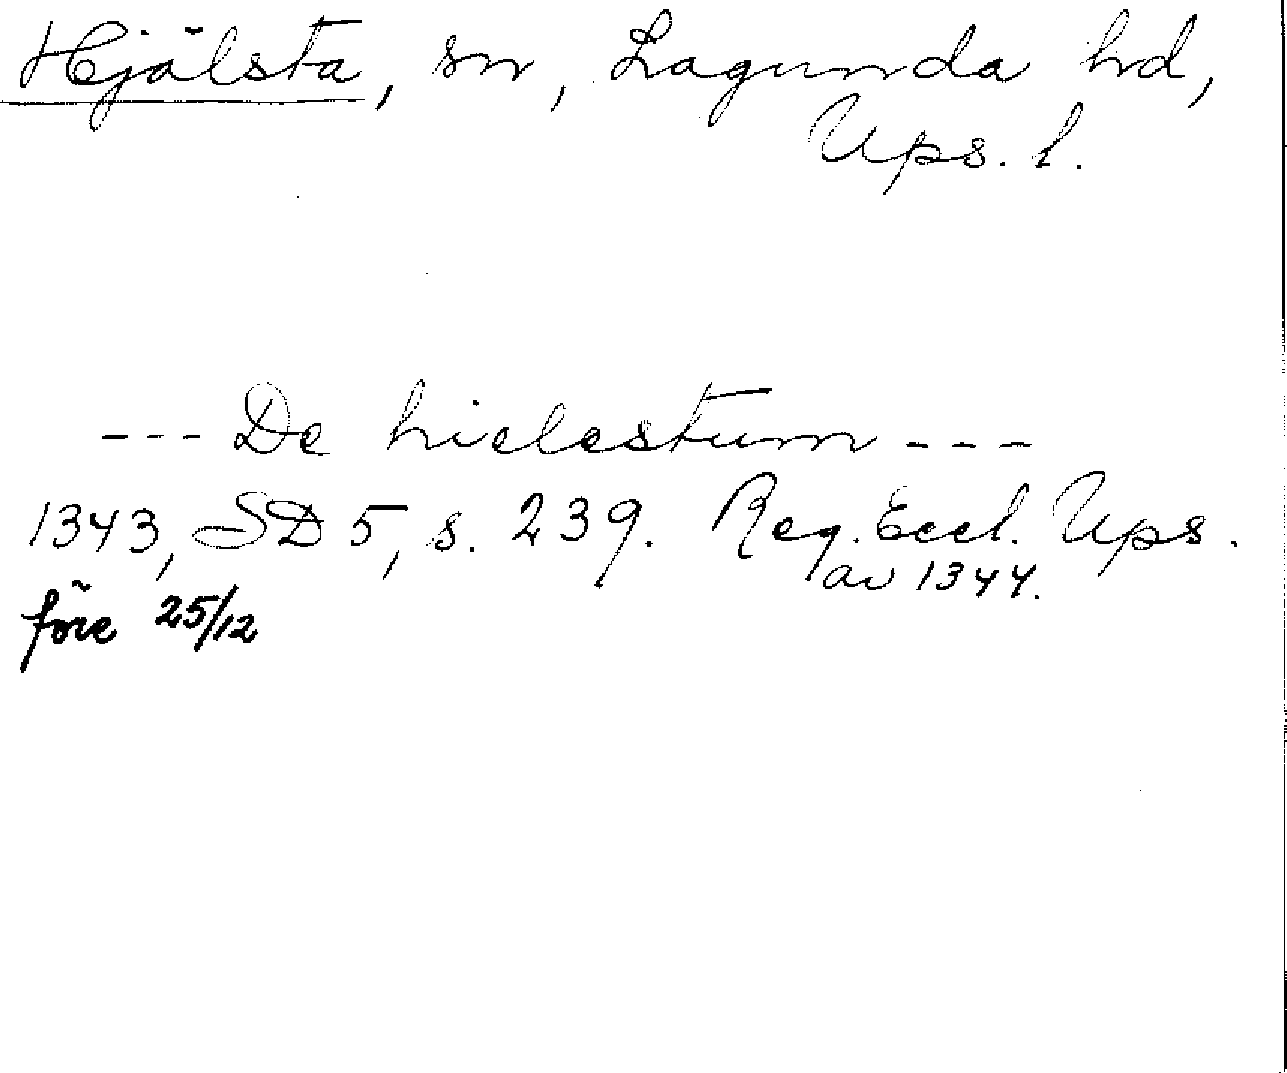 Hjälsta, sn, Lagunda hd,
Ups. l.
--- De hielestum ---
1343, SD 5, s. 239. Reg. Eccl. Ups.
av 1344.
före 25/12